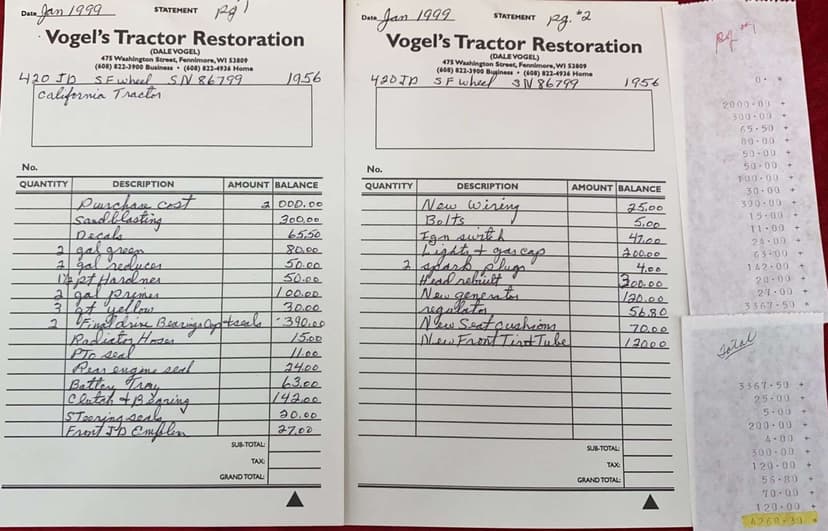 Date Jan 1999 STATEMENT pg 1
Vogel's Tractor Restoration
(DALE VOGEL)
475 Washington Street, Fennimore, WI 53809
(608) 822-3900 Business • (608) 822-4936 Home
420 JD S F wheel SN 86799 1956
California Tractor
No.
QUANTITY DESCRIPTION AMOUNT BALANCE
Purchase cost 2 000.00
Sandblasting 300.00
Decals 65.50
2 gal green 80.00
2 gal reducer 50.00
1½ pt Hardner 50.00
2 gal primer 100.00
3 qt yellow 30.00
2 Final drive Bearings Cup + seals 390.00
Radiator Hoses 15.00
PTO seal 11.00
Rear engine seal 24.00
Battery Tray 63.00
Clutch + Bearing 142.00
Steering seals 20.00
Front JD Emblem 27.00
SUB-TOTAL:
TAX:
GRAND TOTAL:
Date Jan 1999 STATEMENT pg. #2
Vogel's Tractor Restoration
(DALE VOGEL)
475 Washington Street, Fennimore, WI 53809
(608) 822-3900 Business • (608) 822-4936 Home
420 JD S F wheel SN 86799 1956
No.
QUANTITY DESCRIPTION AMOUNT BALANCE
New Wiring 25.00
Bolts 5.00
Ign switch
Lights + gas cap 200.00
2 spark plugs 4.00
Head rebuilt 300.00
New generator 120.00
regulator 56.80
New Seat cushions 70.00
New Front Tire + Tube 120.00
SUB-TOTAL:
TAX:
GRAND TOTAL:
pg #1
0. *
2000.00 +
300.00 +
65.50 +
80.00 +
50.00 +
50.00 +
100.00 +
30.00 +
390.00 +
15.00 +
11.00 +
24.00 +
63.00 +
142.00 +
20.00 +
27.00 +
3367.50 *
Total
3367.50 +
25.00 +
5.00 +
200.00 +
4.00 +
300.00 +
120.00 +
56.80 +
70.00 +
120.00 +